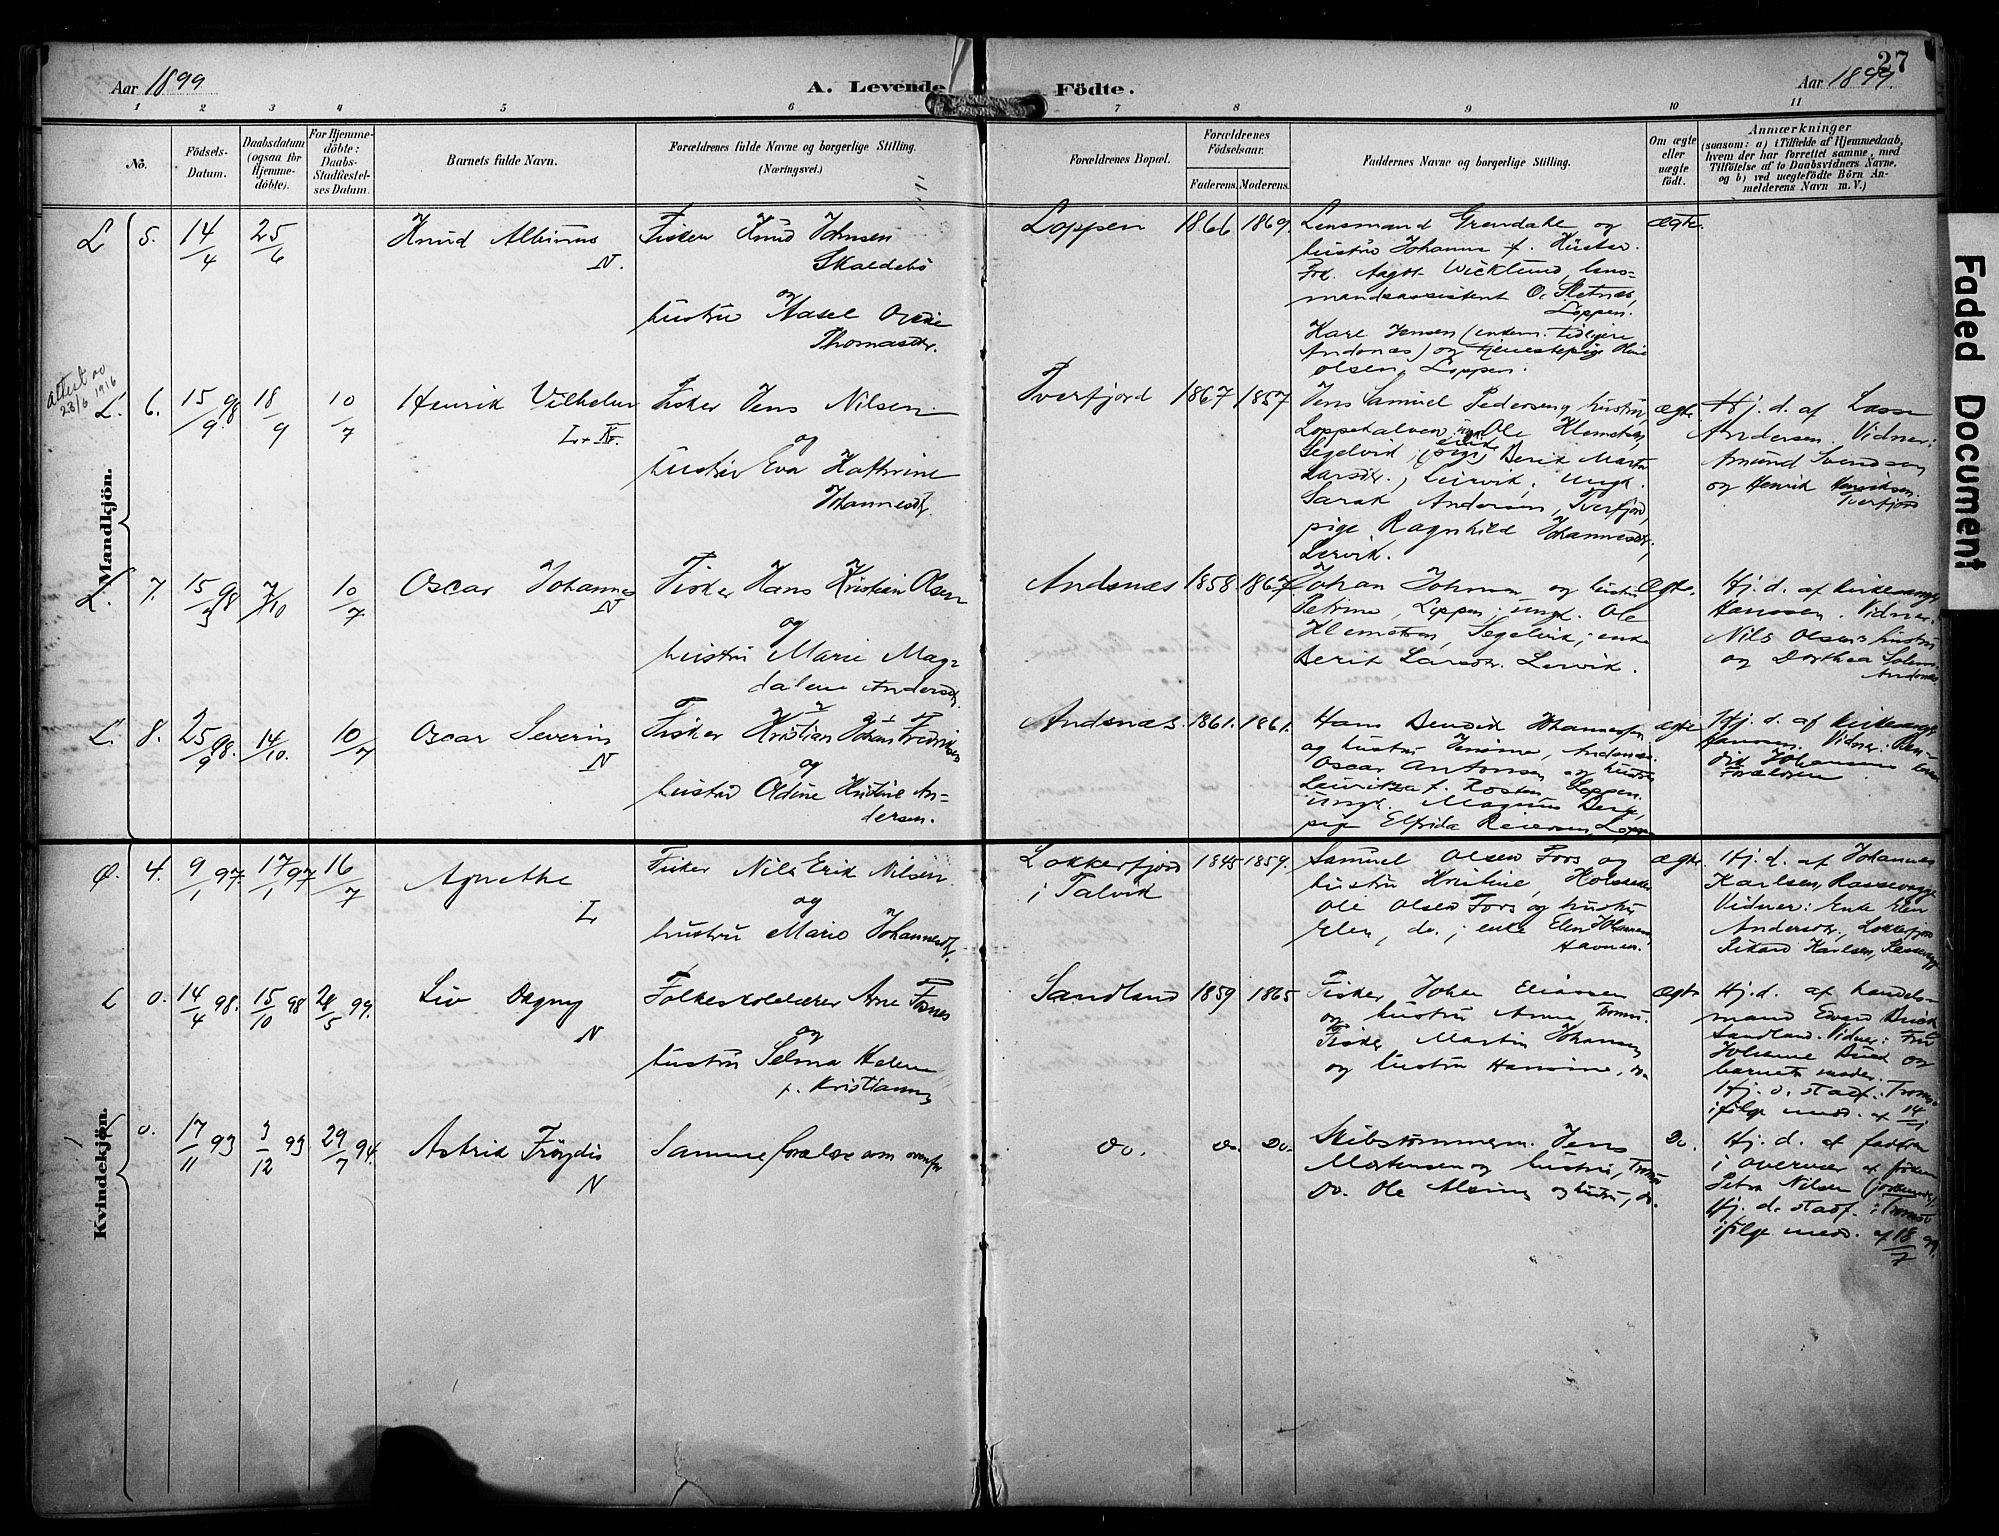 27
Aar 1899
A. Levende Födte.
Aar 1899.
1 2 3 4 5 6 7 8 9 10 11
No.
Födsels-Datum.
Daabsdatum (ogsaa for Hjemme-döbte).
For Hjemme-döbte: Daabs-Stadfæstel-ses Datum.
Barnets fulde Navn.
Forældrenes fulde Navne og borgerlige Stilling.
(Næringsvei.)
Forældrenes Bopæl.
Forældrenes Födselsaar.
Faderens. Moderens.
Faddernes Navne og borgerlige Stilling.
Om ægte eller uægte födt.
Anmærkninger
(saasom: a) i Tilfælde af Hjemmedaab,
hvem der har forrettet samme, med
Tilföielse af to Daabsvidners Navne,
og b) ved uægtefödte Börn An-
melderens Navn m. V.)
Faded Document
Mandkjön.
L 5. 14/4 25/6
Knud Albinus
N.
Fisker Knud Johnsen
Skaldebö
og
hustru Aasel
Thomasdr.
Loppen 1866 1869.
Lensmand Grendahl og
hustru Johanne f.
Frk. Aagot Wicklund, lens-
mandsassistent O. Sletnæs,
Loppen.
Kare Jensen tidligere
Andsnæs) og tjenestepige
Olsen, Loppen.
ægte.
Attest
23/6 1916
L. 6. 15/9 98 18/9 10/7
Henrik Vilhelm
L. N.
Fisker Jens Nilsen
og
hustru Eva Kathrine
Johannesdt.
Tverfjord 1867 1857
Jens Samuel Pedersen, hustru,
Loppekalven, Ole Klemetsen,
Segelvik; Berit Marta
Larsdr., Leirvik; ungk.
Sarak Andersen, Tverfjord,
pige Ragnhild Johannesdr.,
Lervik.
ægte
Hj. d. af Lasse
Andersen. Vidner:
Amund Svendsen
og Henrik Henriksen.
Tverfjord
L. 7. 15/3 98 7/10 10/7
Oscar Johannes
N
Fisker Hans Kristian Olsen
og
hustru Marie Mag-
dalene Andersdt.
Andsnæs 1858 1867
Johan Johnsen og hustru
Petrine, Loppen; ungk. Ole
Klemetsen, Segelvik; enke
Berit Larsdr. Lervik.
Ægte.
Hj. d. af kirkesanger
Hanssen. Vidner:
Nils Olsens hustru
og Dorthea
Andsnæs.
L. 8. 25/9 98. 14/10. 10/7
Oscar Severin
N
Fisker Kristian Johan Fredriksen
og
hustru Oldine Kristine An-
dersen.
Andsnæs. 1861. 1861.
Hans Bendik Johannesen
og hustru Jensine, Andsnæs
Oscar Antonsen og hustru
Lauritza f. Loppen.
ungk. Magnus Berg,
pige Elfrida Reiersen, Loppen
ægte
Hj. d. af kirkesanger
Hanssen. Vidner: Ben-
dik Johansen
Forældrene
Kvindekjön.
Ø. 4. 9/1 97. 17/1 97 16/7
Agnethe
L
Fisker Nils Erik Nilsen
og
hustru Marie Johannesdt.
Lokkerfjord
i Talvik
1845 1859.
Samuel Olsen Fors og
hustru Kristine,
Ole Olsen Fors og hustru
Elen, do.; enke Elen
Havnen.
ægte
Hj. d. af Johannes
Karlsen,
Vidner: Enke Elen
Andersdr., Lokkerfjord
Rikard Karlsen,
L 0. 14/4 98. 15/10 98 28/5 99.
Liv Dagny
N
Folkeskolelærer Arne Fosnes
og
hustru Selma Helene
f. Kristiansen
Sandland 1859 1865
Fisker Johan Eliassen
og hustru Anna Tromsö.
Fisker Martin Johansen
og hustru Hansine, do.
Ægte
Hj. d. af handels-
mand Edvard Buck
Sandland. Vidner: Fru
Johanne Buck og
barnets moder.
Hj. d. stadf. i Tromsö
ifölge medd. af 14/
L 0. 17/11 93 3/12 93. 29/7 94.
Astrid Fröydis
N
Samme forældre som ovenfor
do. do. do.
Skibstömmerm. Jens
Mortensen og hustru, Tromsö
Do. Ole Alsing og hustru, do.
D.
Hj. d. af faderen
i overvær af
Petra Nilsen (jordemoder)
Hj. d. stadf. i Tromsö
ifölge medd. af 18/7 99.